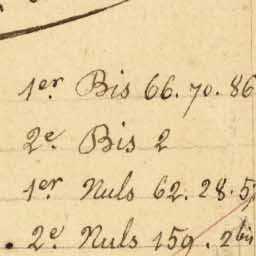 1er. Bis 66. 70. 86
2e. Bis 2
1er. Nuls 62. 28. 5
2e. Nuls 159. 2 bis